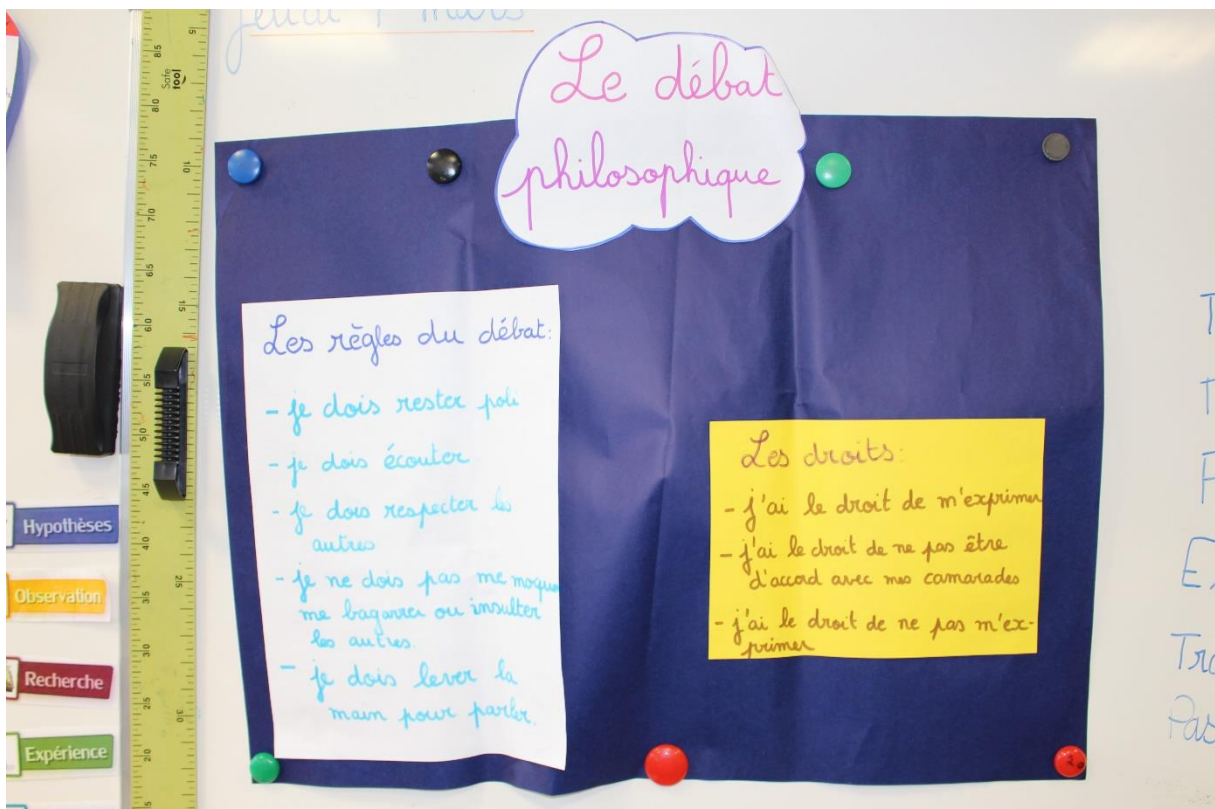 jeudi 1 mars
Le débat
philosophique
Les règles du débat:
- je dois rester poli
- je dois écouter
- je dois respecter les
autres
- je ne dois pas me moquer
me bagarrer ou insulter
les autres.
- je dois lever la
main pour parler.
Les droits:
- j'ai le droit de m'exprimer
- j'ai le droit de ne pas être
d'accord avec mes camarades
- j'ai le droit de ne pas m'ex-
primer
Hypothèses
Observation
Recherche
Expérience
Safe
tool
5
8|5
8|0
7|5
1|0
7|0
6|5
1|5
6|0
5|5
5|0
4|5
4|0
2|5
3|5
3|0
3|0
2|5
2|0